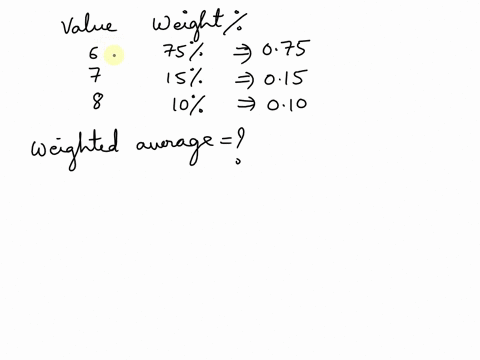 Value Weight%
6 75% ⇒ 0.75
7 15% ⇒ 0.15
8 10% ⇒ 0.10
Weighted average = ?